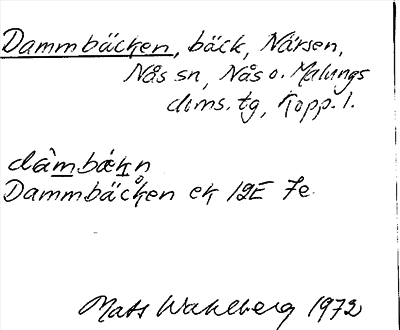 Dammbäcken, bäck, Närsen,
Nås sn, Nås o. Malungs
dms. tg, Kopp. l.
dàmbäkn
Dammbäcken ek 12E 7e
Mats Wahlberg 1972